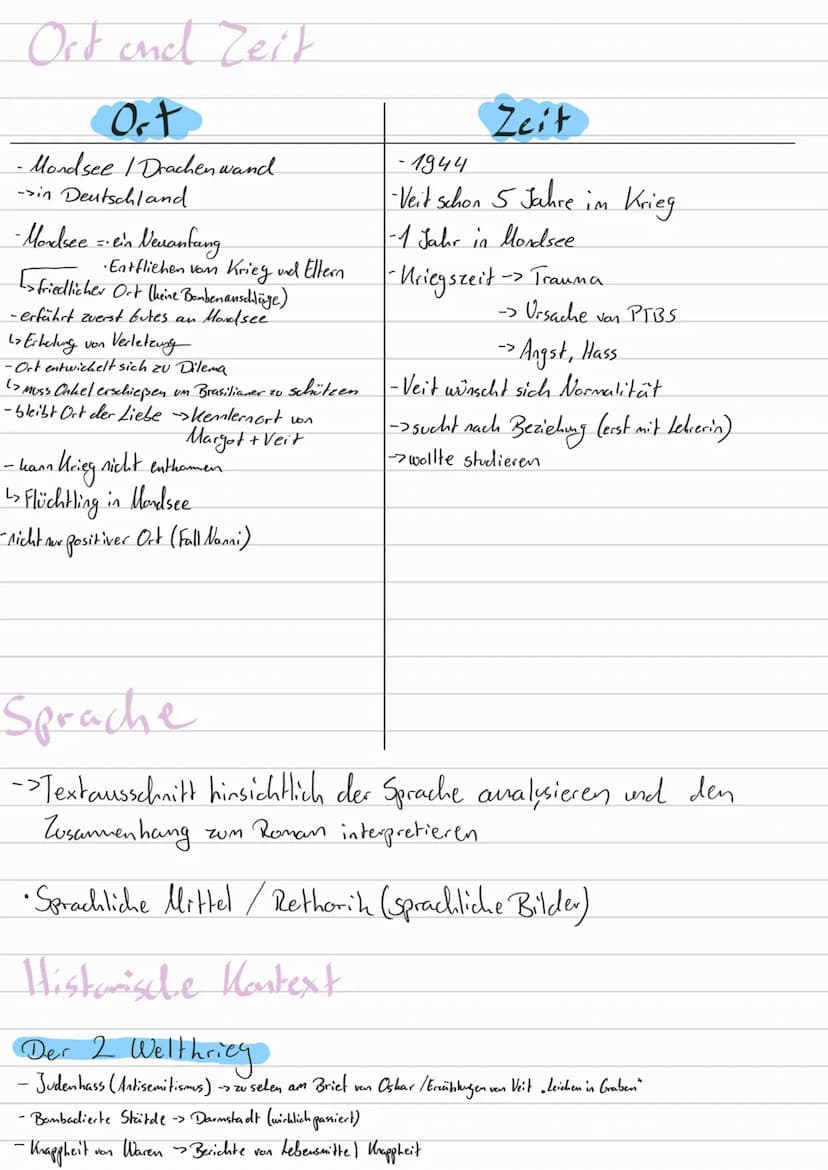 Ort und Zeit
Ort
- Mondsee / Drachenwand
-> in Deutschland
- Mondsee =· ein Neuanfang
· Entfliehen vom Krieg und Eltern
↳ friedlicher Ort (keine Bombenanschläge)
- erfährt zuerst Gutes an Mondsee
↳ Erholung von Verletzung
- Ort entwickelt sich zu Dilema
↳ muss Onkel erschießen um Brasilianer zu schützen
- bleibt Ort der Liebe -> Kennlernort von
Margot + Veit
- kann Krieg nicht entkommen
↳ Flüchtling in Mondsee
- nicht nur positiver Ort (Fall Nanni)
Zeit
- 1944
- Veit schon 5 Jahre im Krieg
- 1 Jahr in Mondsee
- Kriegszeit -> Trauma
-> Ursache von PTBS
-> Angst, Hass
- Veit wünscht sich Normalität
-> sucht nach Beziehung (erst mit Lehrerin)
-> wollte studieren
Sprache
-> Textausschnitt hinsichtlich der Sprache analysieren und den
Zusammenhang zum Roman interpretieren
· Sprachliche Mittel / Rethorik (sprachliche Bilder)
Historische Kontext
Der 2 Weltkrieg
- Judenhass (Antisemitismus) -> zu sehen am Brief von Oskar / Erzählungen von Veit „Leichen in Graben"
- Bombadierte Städte -> Darmstadt (wirklich passiert)
- Knappheit von Waren -> Berichte von Lebensmittel Knappheit